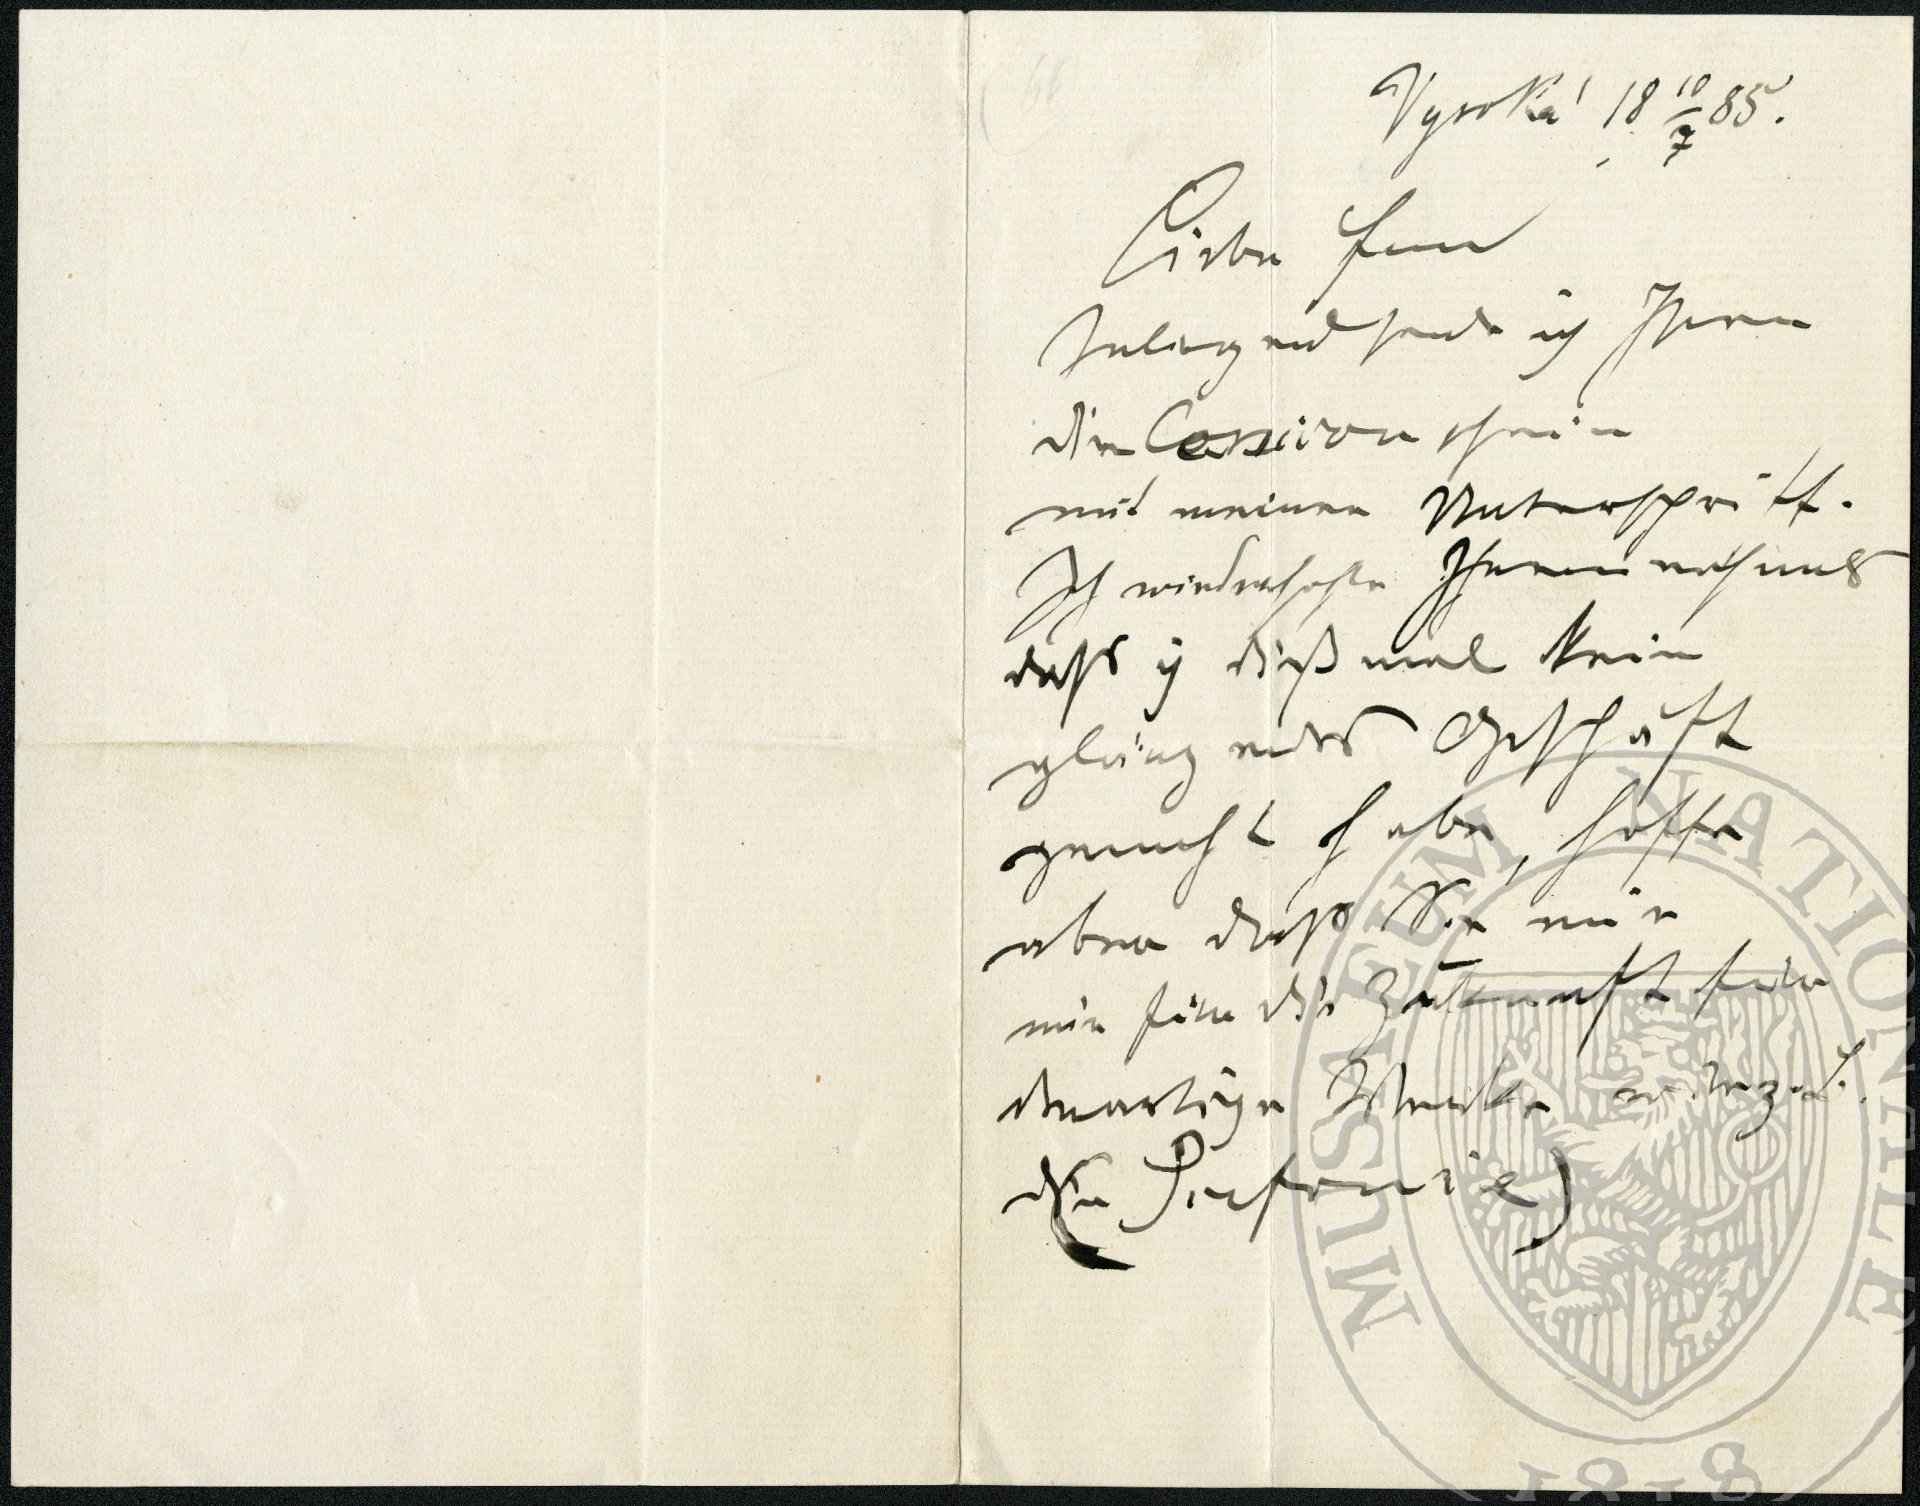 Vysoká, 18 10/7 85.
Lieber Herr
Inliegend sende ich Ihnen
den Cessionschein
mit meiner Unterschrift.
Ich wiederhohle Ihnen nochmals
dass ich dießmal kein
glänzendes Geschäft
gemacht habe, hoffe
aber daß Sie mir
mir für die Zukunft für
derartige Werke
(die Sinfonie)
MUSAEUM NATIONALE
1818